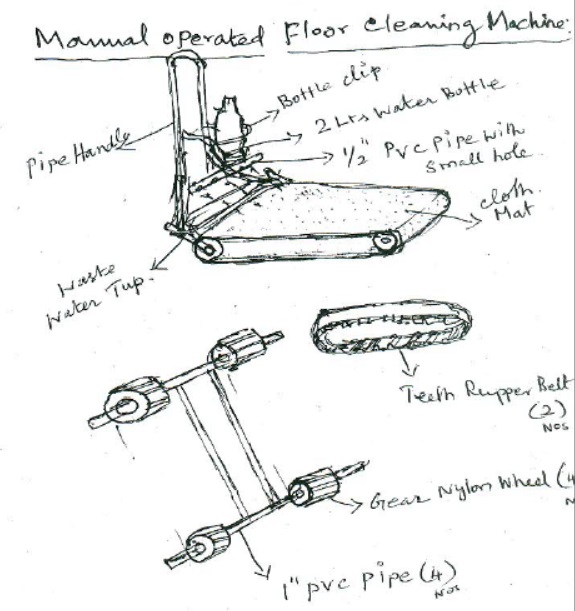 Manual operated Floor cleaning Machine:
Bottle clip
2 Ltrs Water Bottle
Pipe Handle
1/2" Pvc Pipe with
small hole
cloth
Mat
Waste
Water Tup.
Teeth Rupper Belt
(2)
Nos
Gear Nylon Wheel (4
N
1" pvc pipe (4)
Nos